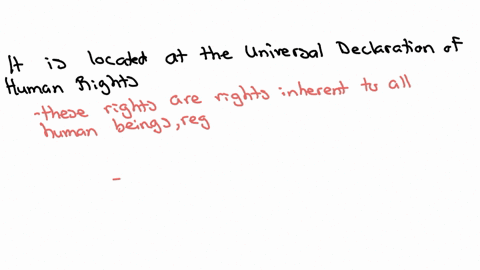 It is located at the Universal Declaration of
Human Rights
-these rights are rights inherent to all
human beings, reg
-